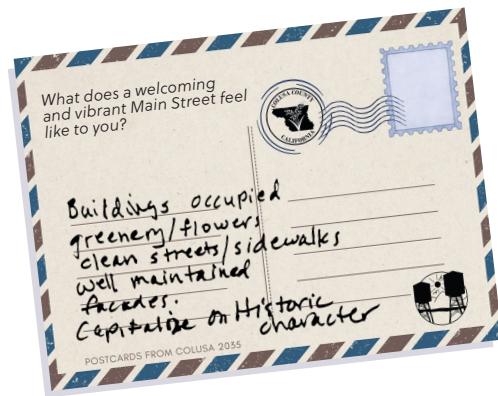 What does a welcoming
and vibrant Main Street feel
like to you?
COLUSA COUNTY
CALIFORNIA
Buildings occupied
greenery/flowers
clean streets/sidewalks
well maintained
facades.
Capitalize on Historic
character
POSTCARDS FROM COLUSA 2035